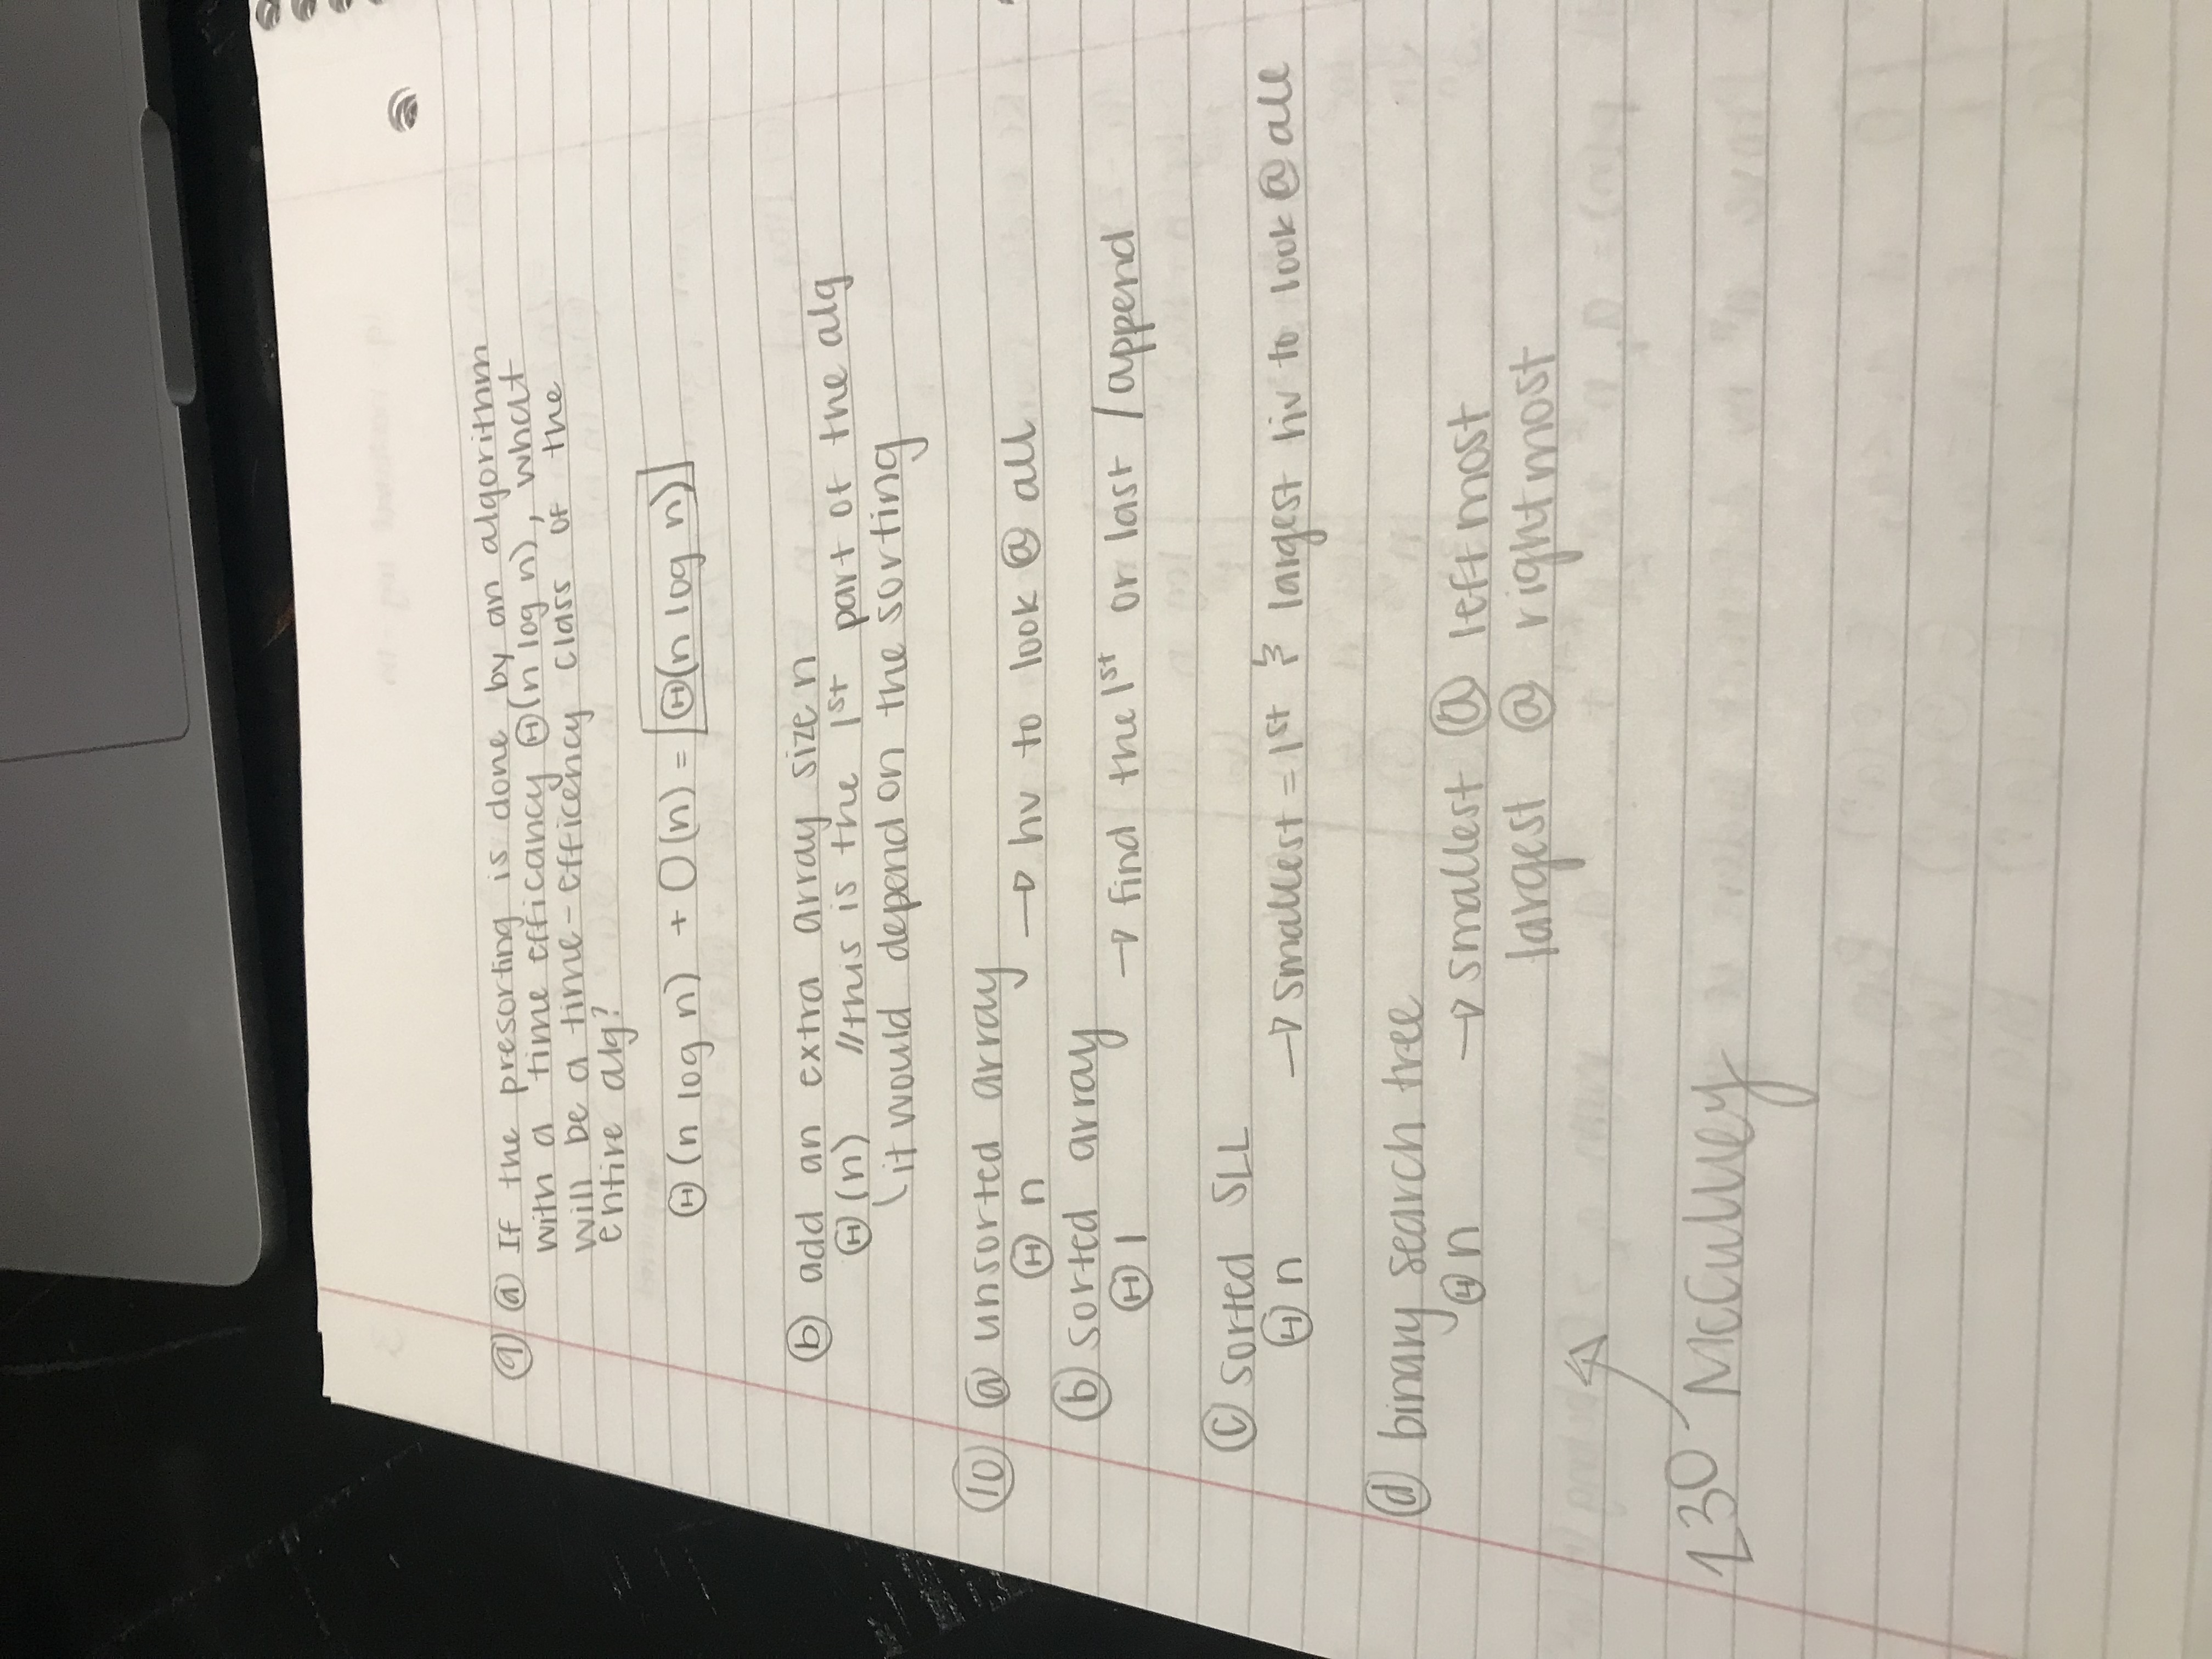 ⑨ ⓐ If the presorting is done by an algorithm
with a time efficancy Θ(n log n), what
will be a time-efficency class of the
entire alg?
Θ(n log n) + O(n) = Θ(n log n)
ⓑ add an extra array size n
Θ(n) //this is the 1st part of the alg
it would depend on the sorting
⑩ ⓐ unsorted array
Θ n → hv to look @ all
ⓑ sorted array
Θ 1 → find the 1st or last / append
ⓒ sorted SLL
Θ n → smallest = 1st & largest hv to look @ all
ⓓ binary search tree
Θ n → smallest @ leftmost
largest @ rightmost
230